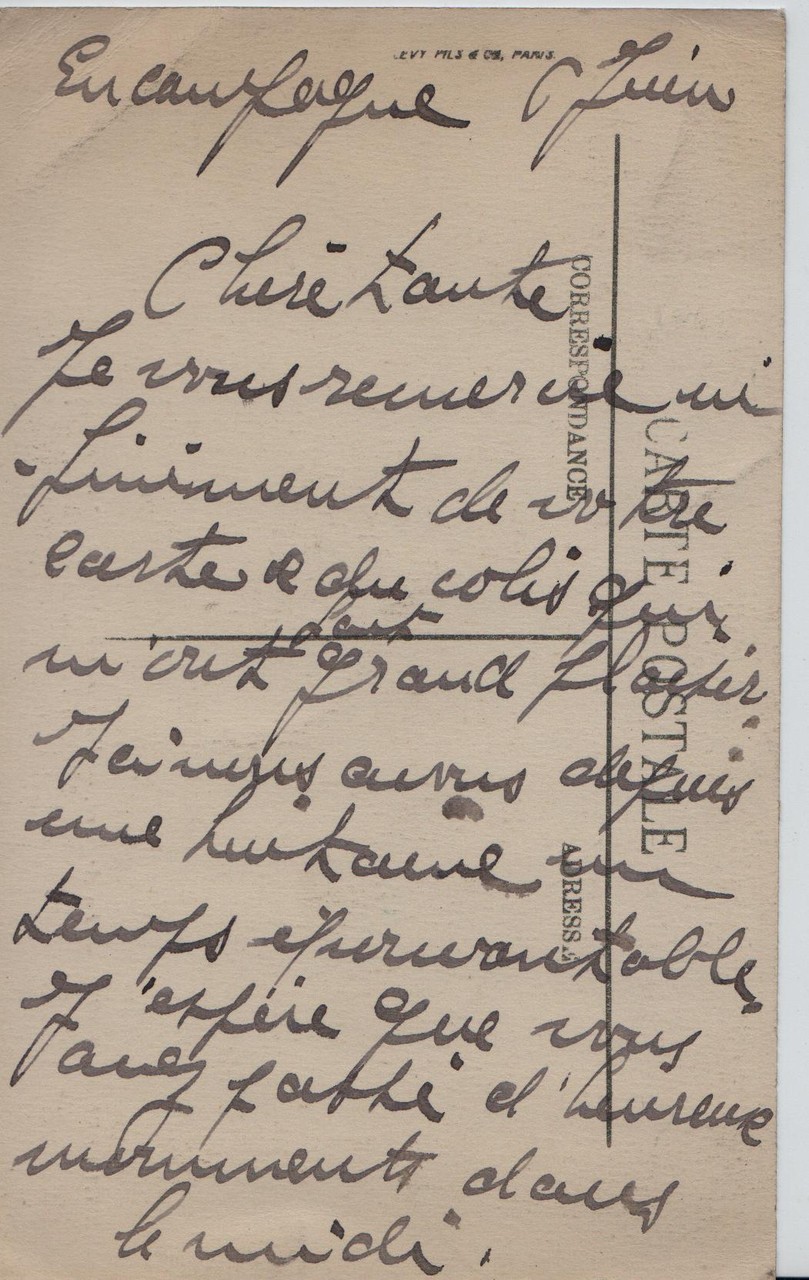 LEVY FILS & CIE, PARIS.
En campagne 6 Juin
Chere tante
Je vous remercie in
finiment de votre
carte & du colis qui
fait
m'ont grand plaisir
Ici nous avons depuis
une huitaine un
temps epouvantable.
J'espére que vous
avez passé d'heureux
momments dans
le midi.
CORRESPONDANCE
ADRESSE
CARTE POSTALE